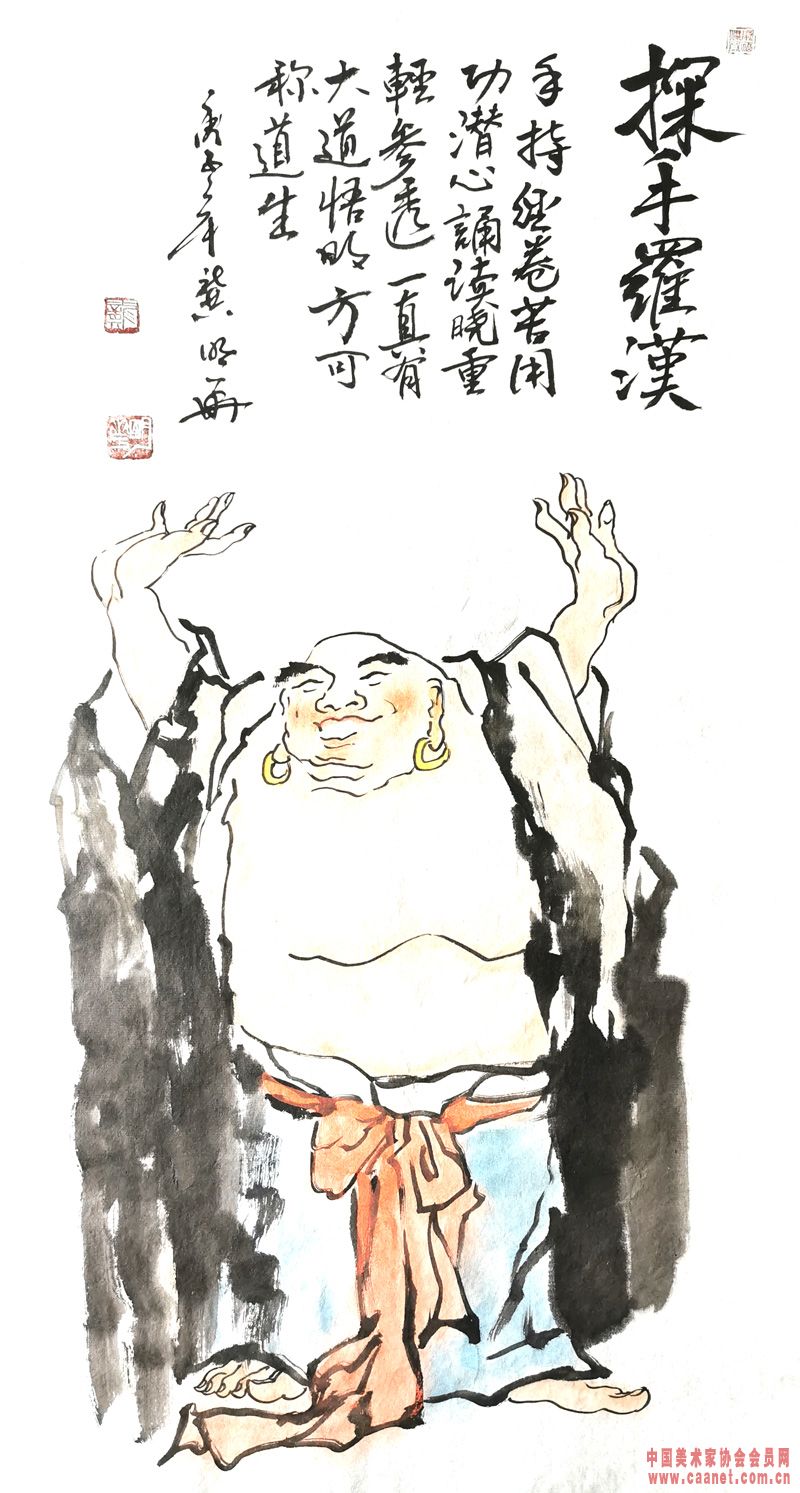 探手羅漢
手持经卷苦用
功潜心誦读晓重
輕参透一真有
大道悟明方可
称道生
庚子年龚明
中国美术家协会会员网
www.caanet.com.cn